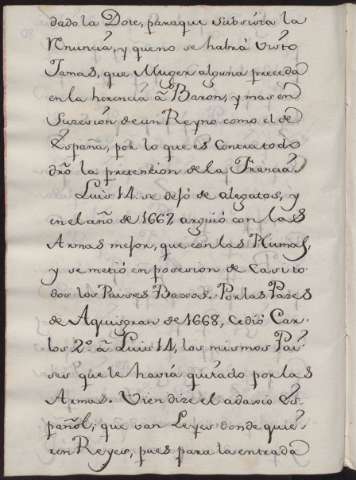 dado la Dote, para que subsista la
Renuncia, y que no se habrá visto
Jamas, que Muger alguna preceda
en la herencia â Baron, y mas en
Succesion de un Reyno como el de
España, por lo que es contra todo
dro. la pretencion de la Francia.
Luis 14 se dejó de alegatos, y
en el año de 1667 arguió con las
Armas mejor, que con las Plumas,
y se metió en posesion de Casi to
dos los Paises Baxos. Por las Pazes
de Aquisgran de 1668, Cedió Car
los 2º. â Luis 14, los mismos Pai
ses que le havia quitado por las
Armas. Vien dize el adagio Es
pañol; que van Leyes donde quie
ren Reyes, pues para la entrada